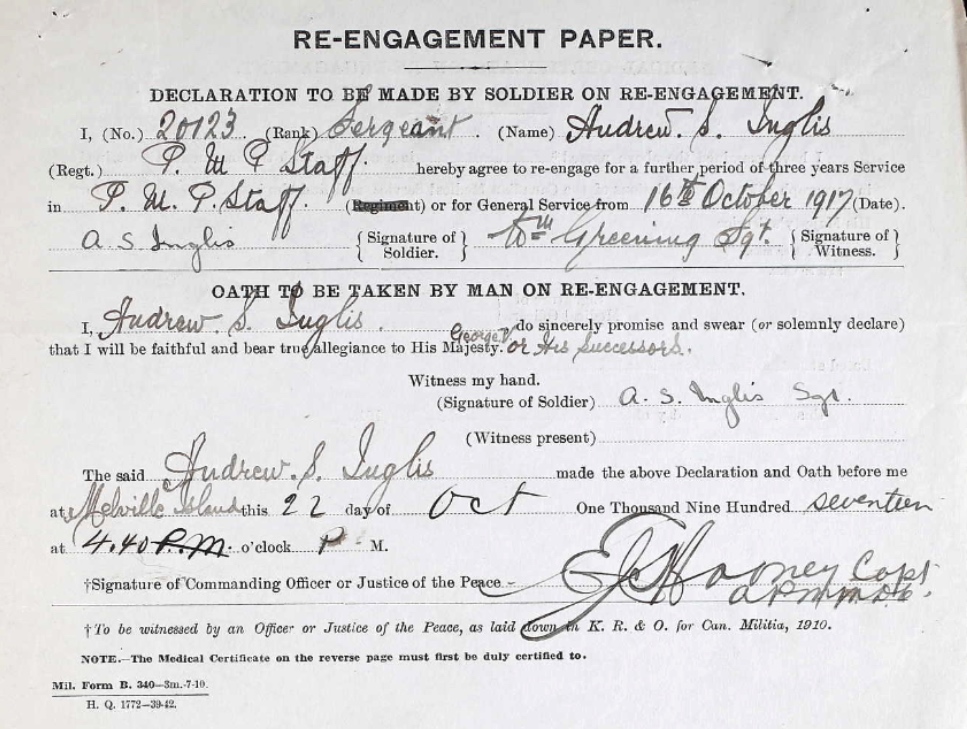 RE-ENGAGEMENT PAPER.
DECLARATION TO BE MADE BY SOLDIER ON RE-ENGAGEMENT.
I, (No.) 20123 (Rank) Sergeant. (Name) Andrew. S. Inglis
(Regt.) P. M. P. Staff. hereby agree to re-engage for a further period of three years Service
in P. M. P. Staff. (Regiment) or for General Service from 16th October 1917 (Date).
A S Inglis { Signature of Soldier. } Wm Greening Sgt. { Signature of Witness. }
OATH TO BE TAKEN BY MAN ON RE-ENGAGEMENT.
I, Andrew. S. Inglis. do sincerely promise and swear (or solemnly declare)
that I will be faithful and bear true allegiance to His Majesty. George V. or His Successors.
Witness my hand.
(Signature of Soldier) A. S. Inglis Sgt.
(Witness present)
The said Andrew. S. Inglis made the above Declaration and Oath before me
at Melville Island this 22 day of Oct One Thousand Nine Hundred seventeen
at 4.40 P.M. o'clock P M.
†Signature of Commanding Officer or Justice of the Peace Capt
†To be witnessed by an Officer or Justice of the Peace, as laid down in K. R. & O. for Can. Militia, 1910.
NOTE.—The Medical Certificate on the reverse page must first be duly certified to.
Mil. Form B. 340—3m.-7-10.
H. Q. 1772—39-42.